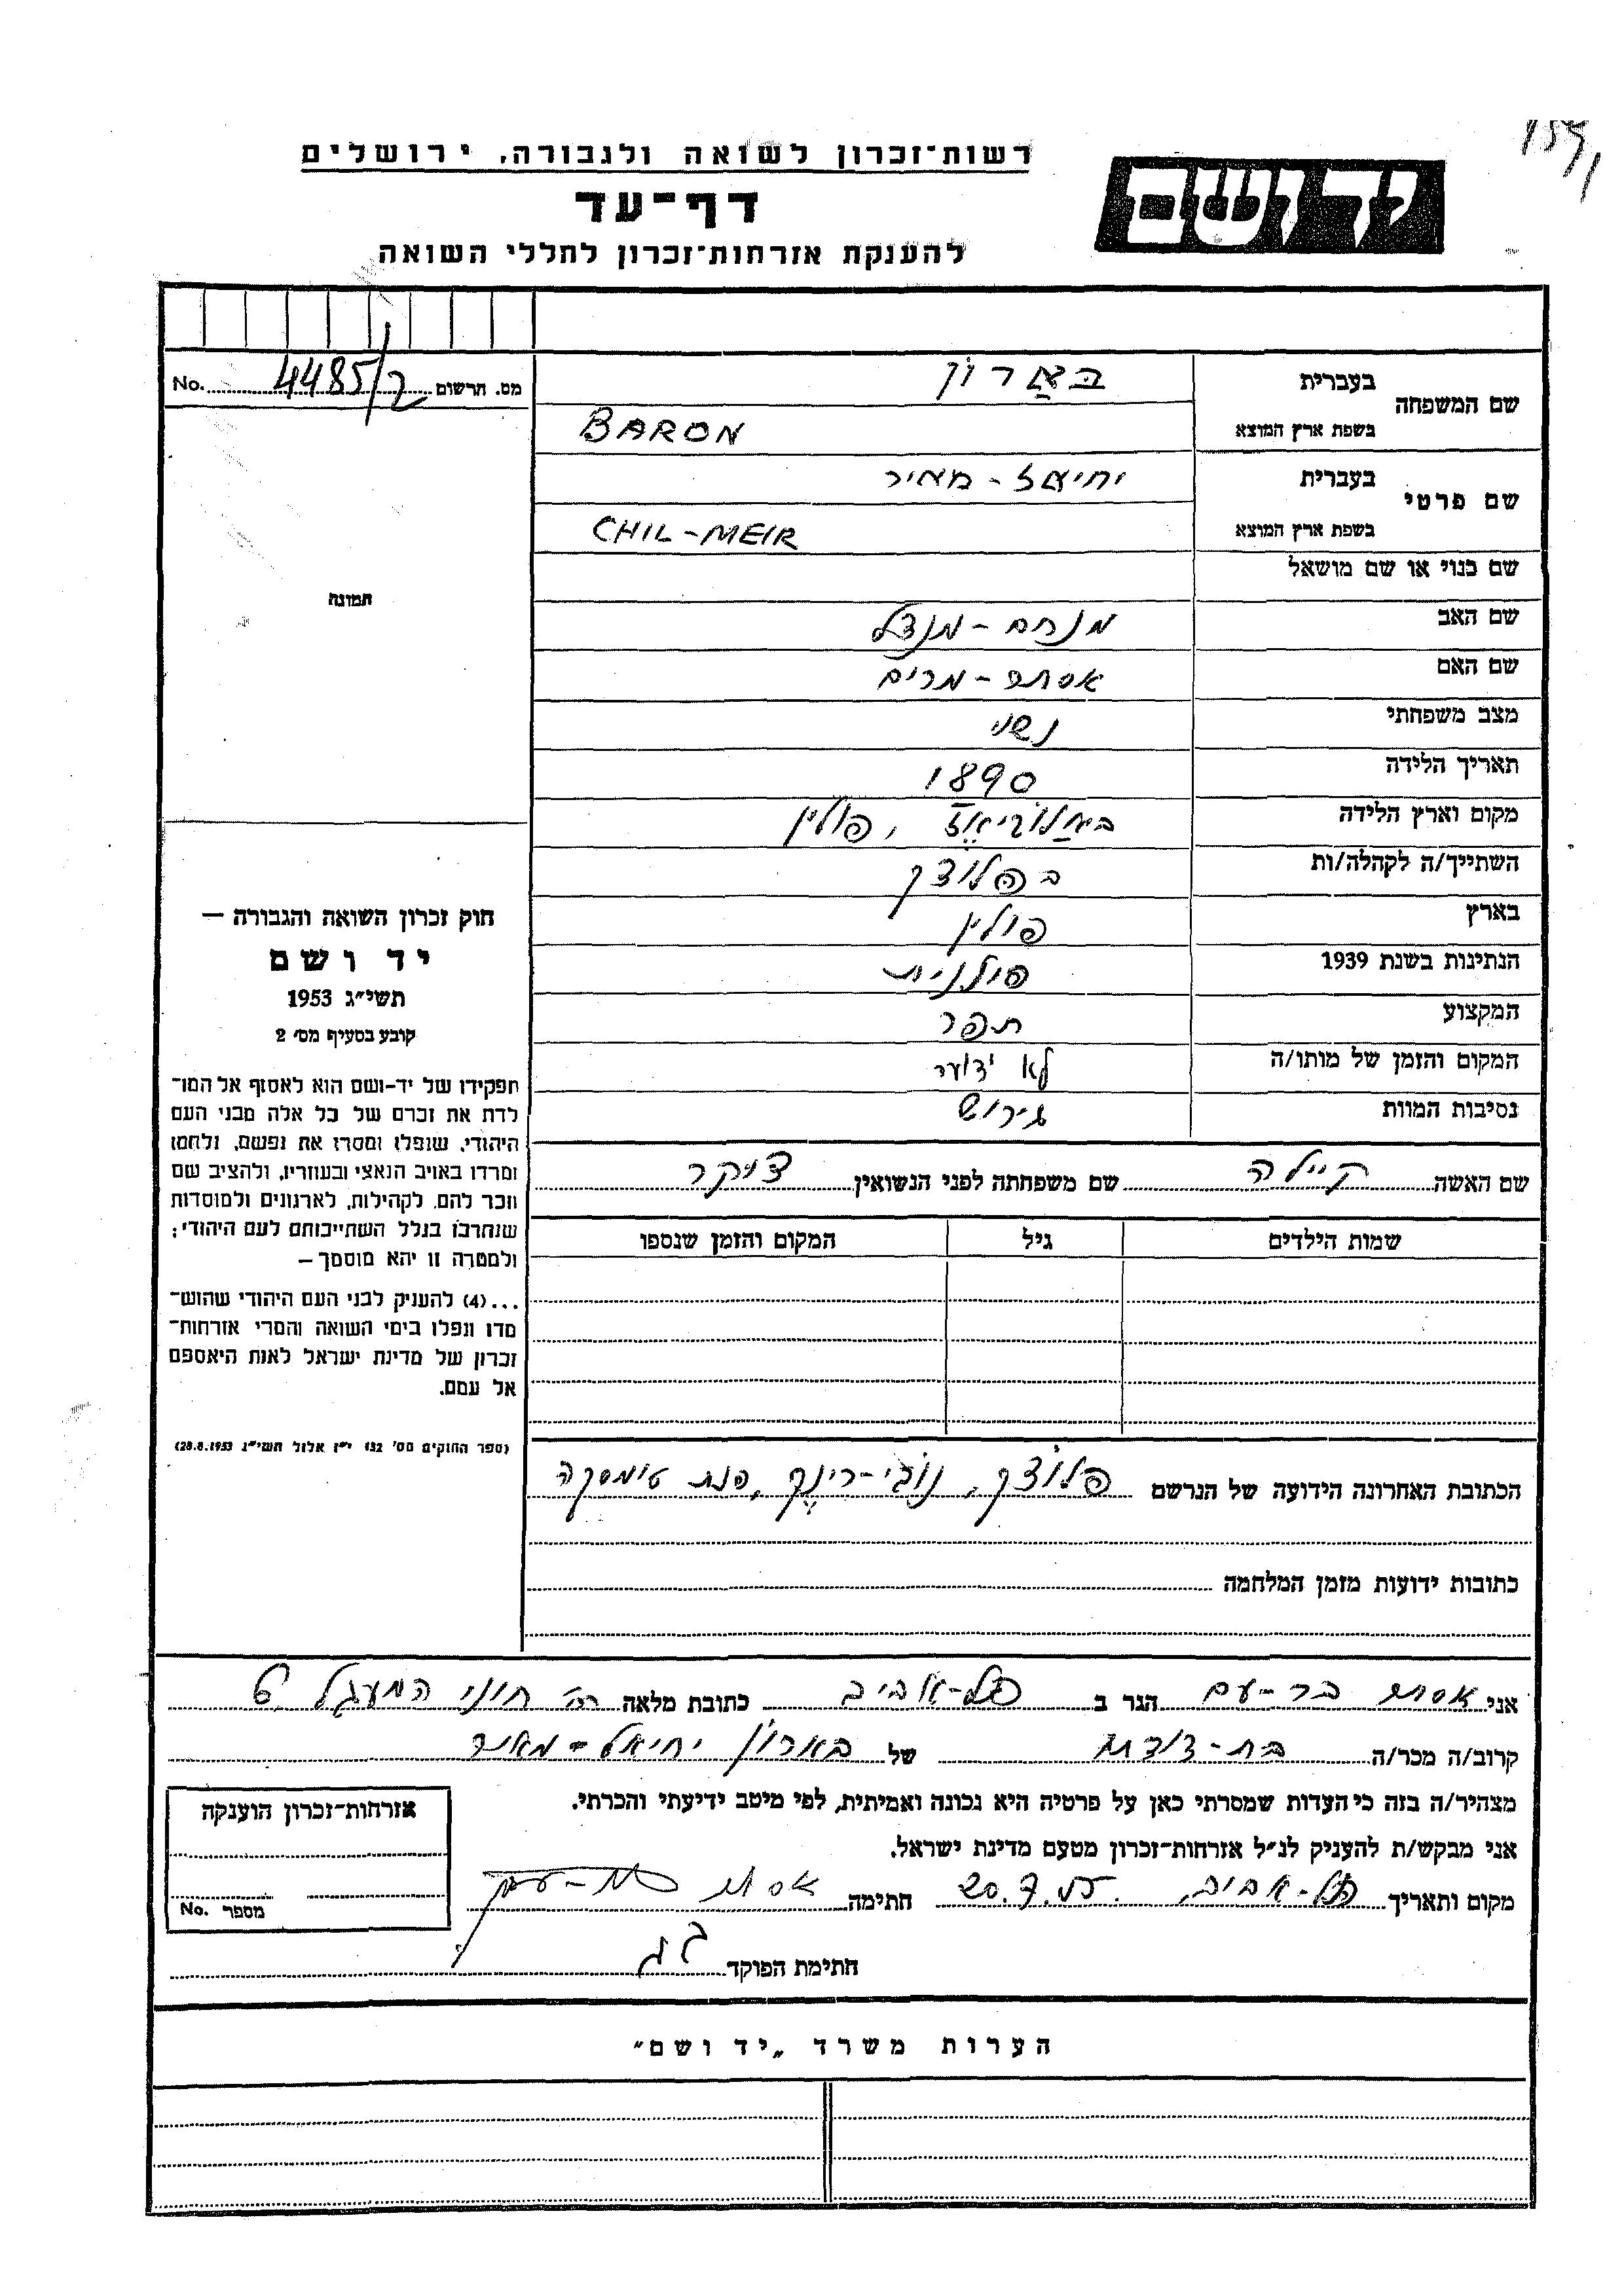 רשות־זכרון לשואה ולגבורה, ירושלים
דף־עד
להענקת אזרחות־זכרון לחללי השואה
יד ושם
מס. הרשום 4485/2 No.
שם המשפחה
בעברית באַרוֹן
בשפת ארץ המוצא BARON
שם פרטי
בעברית יחיאל - מאיר
בשפת ארץ המוצא CHIL-MEIR
שם כנוי או שם מושאל
שם האב מנחם - מנדל
שם האם אסתר - מרים
מצב משפחתי נשוי
תאריך הלידה 1890
מקום וארץ הלידה , פולין
השתייך/ה לקהלה/ות בפלוצק
בארץ פולין
הנתינות בשנת 1939 פולנית
המקצוע תפר
המקום והזמן של מותו/ה לא ידוע
נסיבות המוות גירוש
תמונה
חוק זכרון השואה והגבורה —
יד ושם
תשי״ג 1953
קובע בסעיף מס׳ 2
תפקידו של יד-ושם הוא לאסוף אל המו־
לדת את זכרם של כל אלה מבני העם
היהודי, שנפלו ומסרו את נפשם, נלחמו
ומרדו באויב הנאצי ובעוזריו, ולהציב שם
וזכר להם, לקהילות, לארגונים ולמוסדות
שנחרבו בגלל השתייכותם לעם היהודי;
ולמטרה זו יהא מוסמך —
...(4) להעניק לבני העם היהודי שהוש־
מדו ונפלו בימי השואה והמרי אזרחות־
זכרון של מדינת ישראל לאות היאספם
אל עמם.
(ספר החוקים מס׳ 132 י״ז אלול תשי״ג 28.8.1953)
שם האשה קיילה שם משפחתה לפני הנשואין צוקר
שמות הילדים גיל המקום והזמן שנספו
הכתובת האחרונה הידועה של הנרשם פלוצק, נובי-רינק, פנת
כתובות ידועות מזמן המלחמה
אני אסתר בר-עם הגר ב תל-אביב כתובת מלאה רח׳ חוני המעגל
קרוב/ה מכר/ה בת-דודה של בארון יחיאל-מאיר
מצהיר/ה בזה כי העדות שמסרתי כאן על פרטיה היא נכונה ואמיתית, לפי מיטב ידיעתי והכרתי.
אני מבקש/ת להעניק לנ״ל אזרחות־זכרון מטעם מדינת ישראל.
מקום ותאריך תל-אביב חתימה אסתר בר-עם
חתימת הפוקד
אזרחות־זכרון הוענקה
מספר No.
הערות משרד „יד ושם״